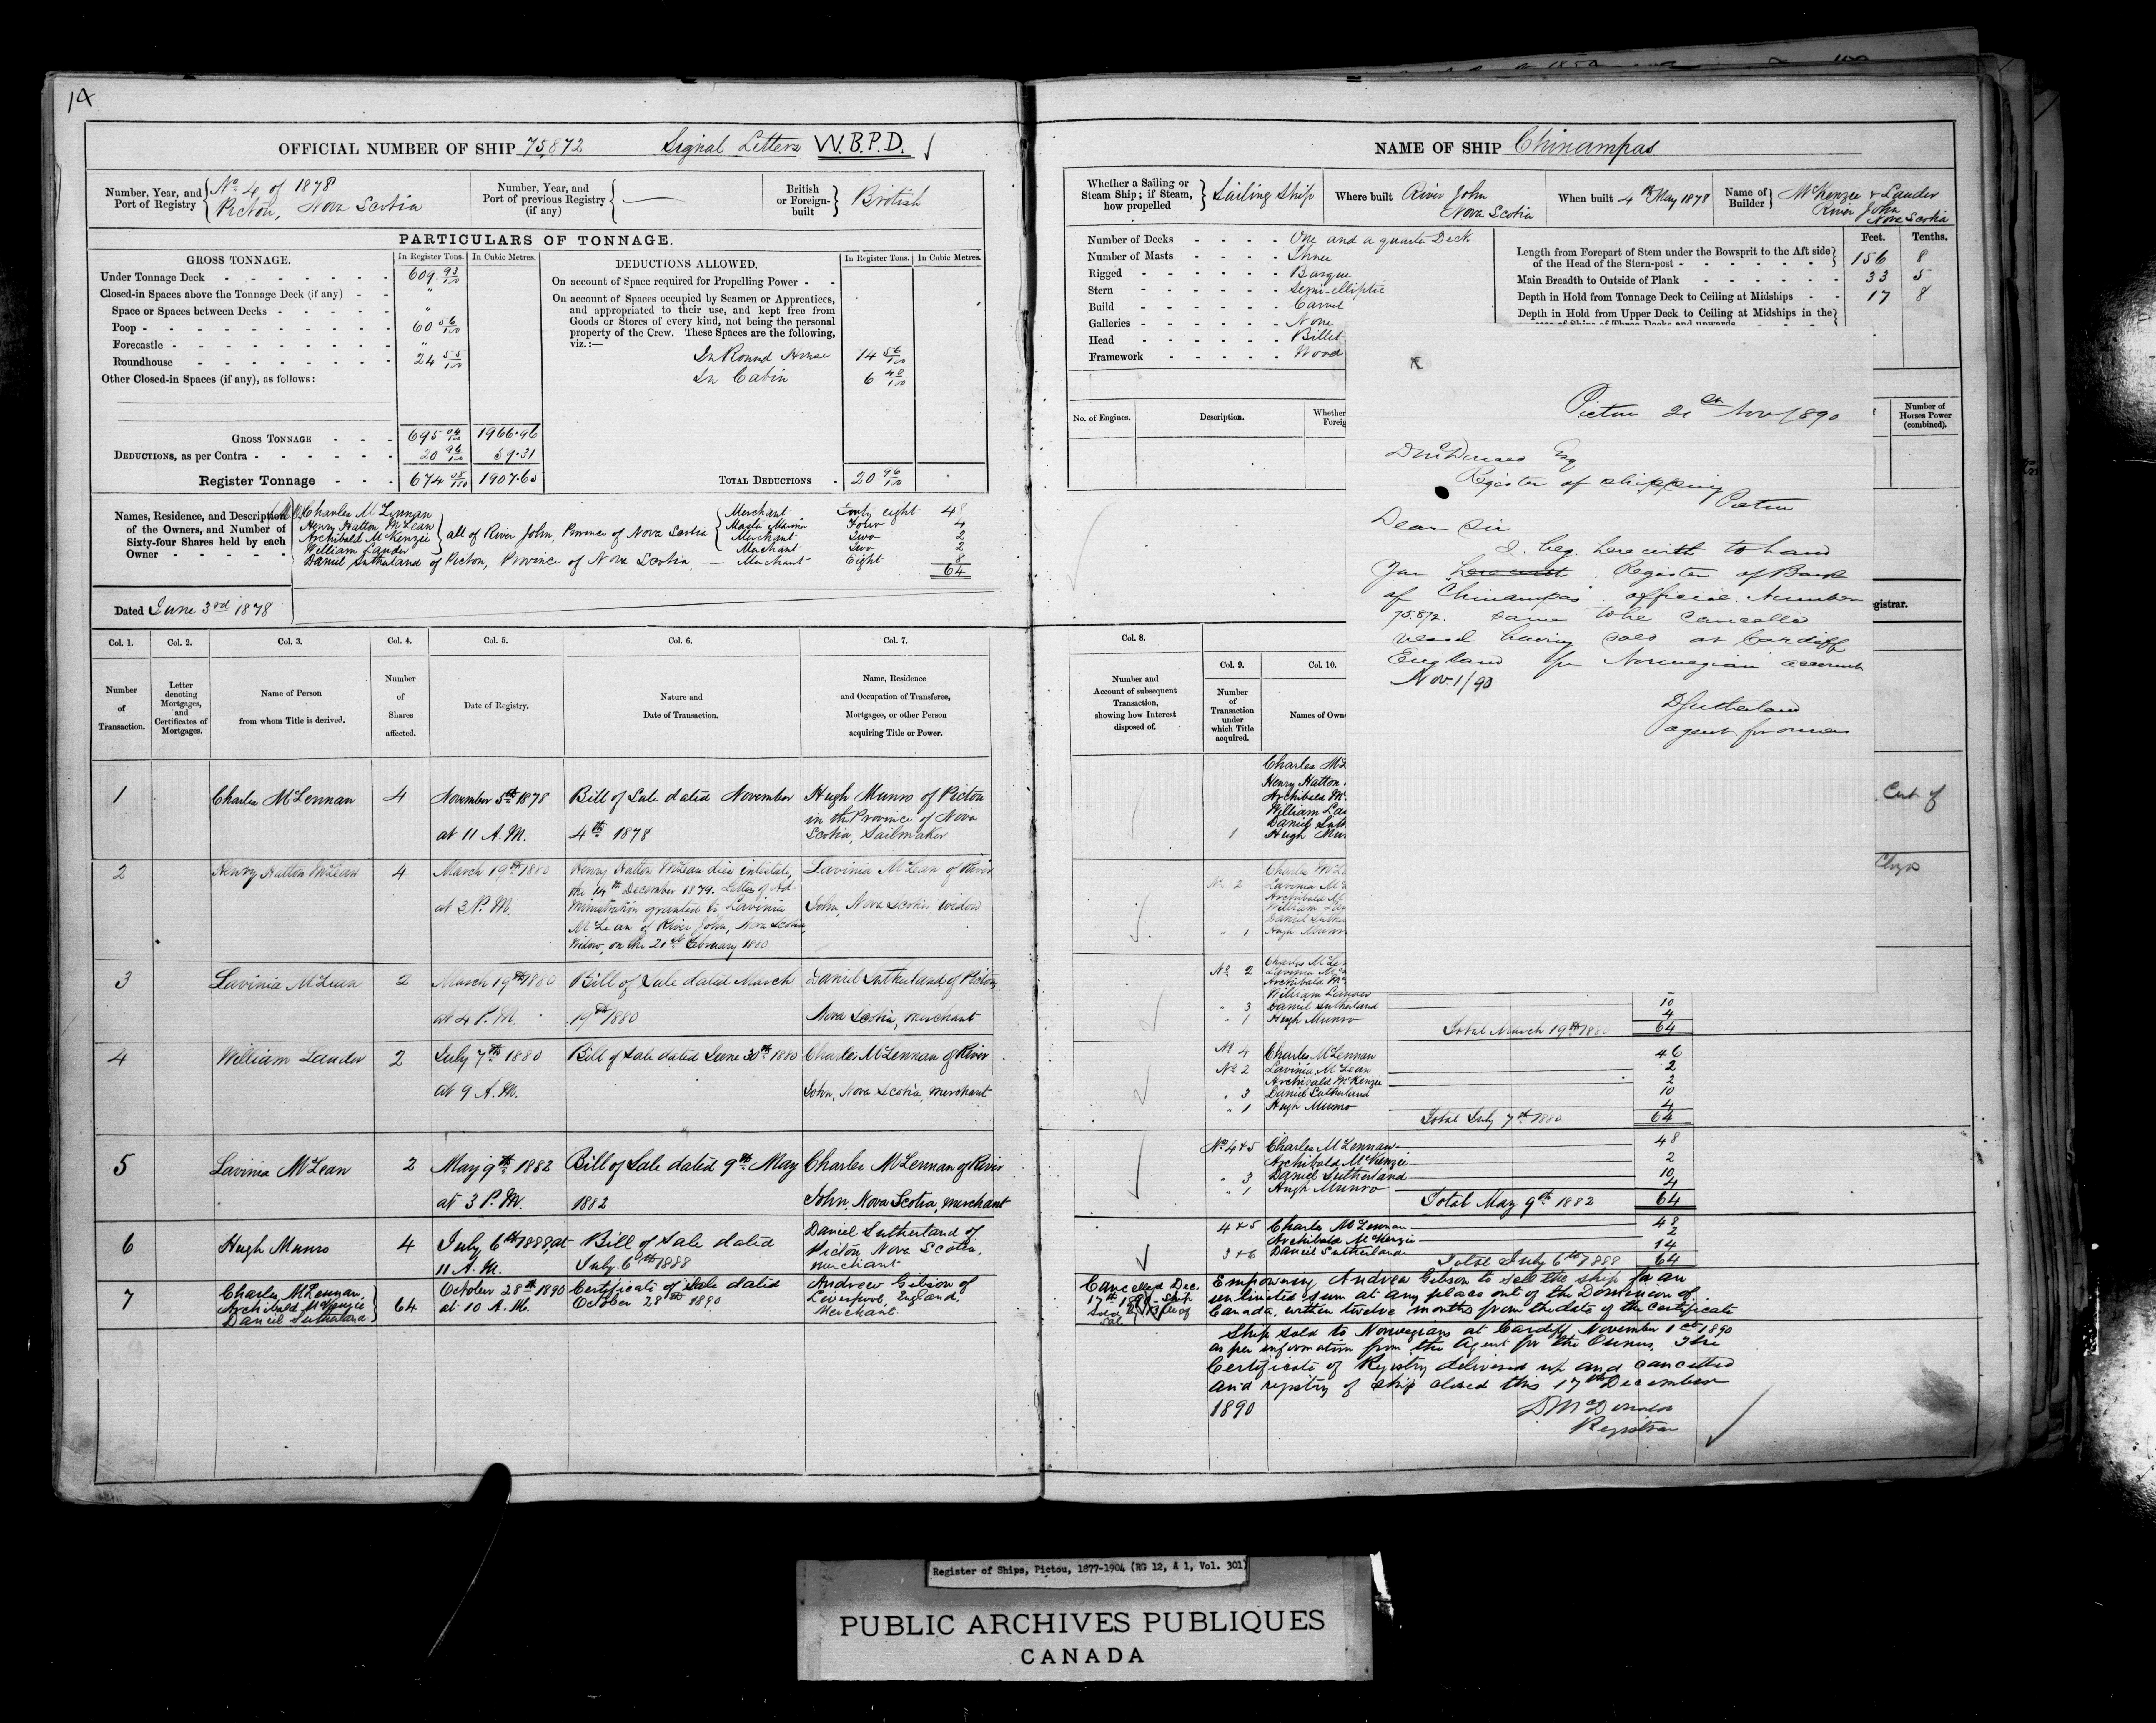 14
OFFICIAL NUMBER OF SHIP 75,872 Signal Letters W.B.P.D.
Number, Year, and Port of Registry No. 4 of 1878
Picton, Nova Scotia
Number, Year, and Port of previous Registry (if any) —
British or Foreign-built British
PARTICULARS OF TONNAGE.
GROSS TONNAGE. In Register Tons. In Cubic Metres.
Under Tonnage Deck 609 93/100
Closed-in Spaces above the Tonnage Deck (if any) "
Space or Spaces between Decks "
Poop 60 56/100
Forecastle "
Roundhouse 24 55/100
Other Closed-in Spaces (if any), as follows:
GROSS TONNAGE 695 04/100 1966.96
DEDUCTIONS, as per Contra 20 96/100 59.31
Register Tonnage 674 08/100 1907.65
DEDUCTIONS ALLOWED. In Register Tons. In Cubic Metres.
On account of Space required for Propelling Power
On account of Spaces occupied by Seamen or Apprentices,
and appropriated to their use, and kept free from
Goods or Stores of every kind, not being the personal
property of the Crew. These Spaces are the following,
viz.:—
In Round House 14 56/100
In Cabin 6 40/100
TOTAL DEDUCTIONS 20 96/100
Names, Residence, and Description
of the Owners, and Number of
Sixty-four Shares held by each
Owner
Charles McLennan Merchant Forty eight 48
Henry Hatton McLean Master Mariner Four 4
Archibald McKenzie all of River John, Province of Nova Scotia Merchant Two 2
William Lauder Merchant Two 2
Daniel Sutherland of Picton, Province of Nova Scotia — Merchant Eight 8
64
Dated June 3rd 1878
Col. 1. Col. 2. Col. 3. Col. 4. Col. 5. Col. 6. Col. 7.
Number of Transaction.
Letter denoting Mortgages, and Certificates of Mortgages.
Name of Person from whom Title is derived.
Number of Shares affected.
Date of Registry.
Nature and Date of Transaction.
Name, Residence and Occupation of Transferee, Mortgagee, or other Person acquiring Title or Power.
1 Charles McLennan 4 November 5th 1878 Bill of Sale dated November Hugh Munro of Picton
at 11 A.M. 4th 1878 in the Province of Nova
Scotia, Sailmaker
2 Henry Hatton McLean 4 March 19th 1880 Henry Hatton McLean died intestate, Lavinia McLean of River
the 14th December 1879. Letters of Ad-
at 3 P.M. ministration granted to Lavinia John, Nova Scotia, widow
McLean of River John, Nova Scotia,
Widow, on the 21st February 1880
3 Lavinia McLean 2 March 19th 1880 Bill of Sale dated March Daniel Sutherland of Picton,
at 4 P.M. 19th 1880 Nova Scotia, merchant
4 William Lauder 2 July 7th 1880 Bill of Sale dated June 30th 1880 Charles McLennan of River
at 9 A.M. John, Nova Scotia, merchant
5 Lavinia McLean 2 May 9th 1882 Bill of Sale dated 9th May Charles McLennan of River
at 3 P.M. 1882 John, Nova Scotia, merchant
6 Hugh Munro 4 July 6th 1888 at Bill of Sale dated Daniel Sutherland of
11 A.M. July 6th 1888 Picton, Nova Scotia,
merchant
7 Charles McLennan, 64 October 28th 1890 Certificate of Sale dated Andrew Gibson of
Archibald McKenzie at 10 A.M. October 28th 1890 Liverpool, England,
Daniel Sutherland Merchant.
NAME OF SHIP Chinampas
Whether a Sailing or Steam Ship; if Steam, how propelled Sailing Ship
Where built River John
Nova Scotia
When built 4th May 1878
Name of Builder McKenzie & Lauder
River John
Nova Scotia
Number of Decks One and a quarter Deck
Number of Masts Three
Rigged Barque
Stern Semi-elliptic
Build Carvel
Galleries None
Head Billet
Framework Wood
Feet. Tenths.
Length from Forepart of Stem under the Bowsprit to the Aft side
of the Head of the Stern-post 156 8
Main Breadth to Outside of Plank 33 5
Depth in Hold from Tonnage Deck to Ceiling at Midships 17 8
Depth in Hold from Upper Deck to Ceiling at Midships in the
No. of Engines. Description. Whether
Foreig
Number of Horses Power (combined).
Picton 21st Nov/1890
D McDonald Esq
Register of shipping
Picton
Dear Sir
I beg herewith to hand
You herewith Register of Bark
of "Chinampas" official Number
75.872. same to be cancelled
vessel having sold at Cardiff
England for Norwegian account
Nov 1/90
D Sutherland
agent for owners
gistrar.
Col. 8. Col. 9. Col. 10.
Number and Account of subsequent Transaction, showing how Interest disposed of.
Number of Transaction under which Title acquired.
Names of Own
Charles McL
Henry Hatton
Archibald M
William La
Daniel Suth
1 Hugh Mu
Cert. of
No. 2 Charles McLe
Lavinia Mc
Archibald M
William Lau
Daniel Suthe
" 1 Hugh Munr
No. 2 Charles McLe
Lavinia Mc
Archibald M
William Lauder
" 3 Daniel Sutherland 10
" 1 Hugh Munro 4
Total March 19th 1880 64
No. 4 Charles McLennan 46
No. 2 Lavinia McLean 2
Archibald McKenzie 2
" 3 Daniel Sutherland 10
" 1 Hugh Munro 4
Total July 7th 1880 64
No. 4 & 5 Charles McLennan 48
Archibald McKenzie 2
" 3 Daniel Sutherland 10
" 1 Hugh Munro 4
Total May 9th 1882 64
4 & 5 Charles McLennan 48
Archibald McKenzie 2
3 & 6 Daniel Sutherland 14
Total July 6th 1888 64
Cancelled Dec.
17th
Empowering Andrew Gibson to sell the ship for an
unlimited sum at any place out of the Dominion of
Canada, within twelve months from the date of the certificate
Ship sold to Norwegians at Cardiff November 1st 1890
as per information from the Agent for the Owners. The
Certificate of Registry delivered up and cancelled
and registry of ship closed this 17th December
1890
D McDonald
Registrar
Register of Ships, Pictou, 1877-1904 (RG 12, A 1, Vol. 301)
PUBLIC ARCHIVES PUBLIQUES
CANADA